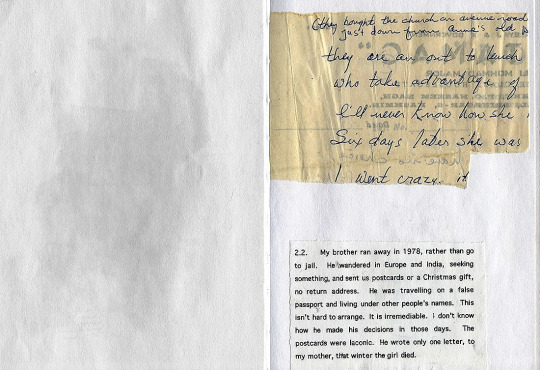 (they bought the church on avenue road
just down from Anne's old
they are all out to lunch
who take advantage of
I'll never know how she
Six days later she was
I went crazy. it
2.2. My brother ran away in 1978, rather than go
to jail. He wandered in Europe and India, seeking
something, and sent us postcards or a Christmas gift,
no return address. He was travelling on a false
passport and living under other people's names. This
isn't hard to arrange. It is irremediable. I don't know
how he made his decisions in those days. The
postcards were laconic. He wrote only one letter, to
my mother, that winter the girl died.